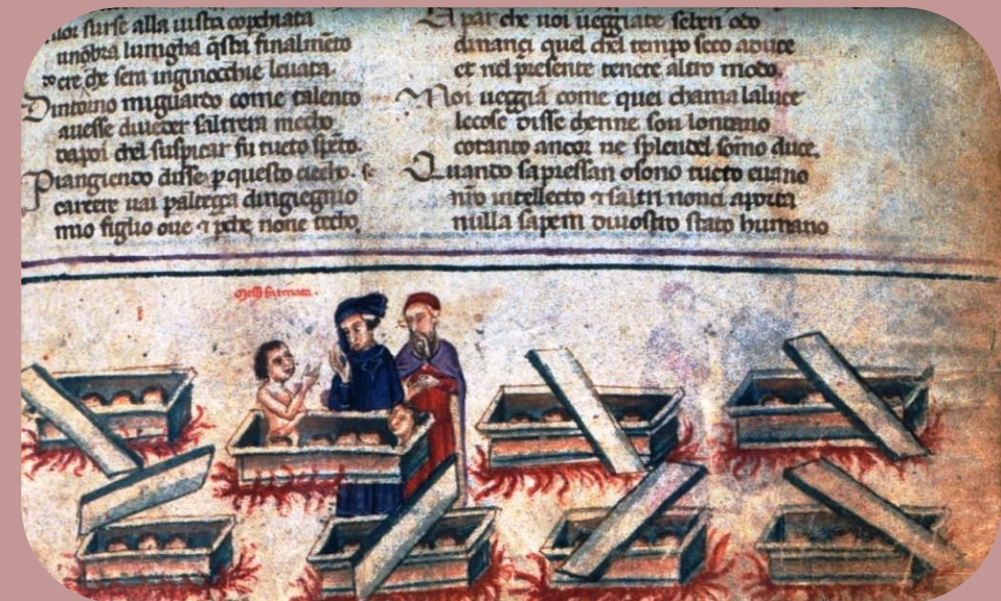 surse alla uista coṗchiata
unōbra lungha q̄sta finalmēto
che sera inginocchie leuata.
Dintorno miguardo come talento
auesse diueder saltrera mecho
dapoi chel suspicar fu tucto spēto.
Piangiendo disse p questo ciecho
carcere uai paltezza dingiegnio
mio figlio oue
par che uoi ueggiate seben odo
dinançi quel chel tempo seco aduce
et nel presente tenete altro modo.
Noi ueggiā come quei chama laluce
lecose disse chenne son lontano
cotanto ancor ne splendel somo duce.
Quando sapressan osono tucto euano
nr̄o intellecto saltri nonci aporta
nulla sapem diuostro stato humano